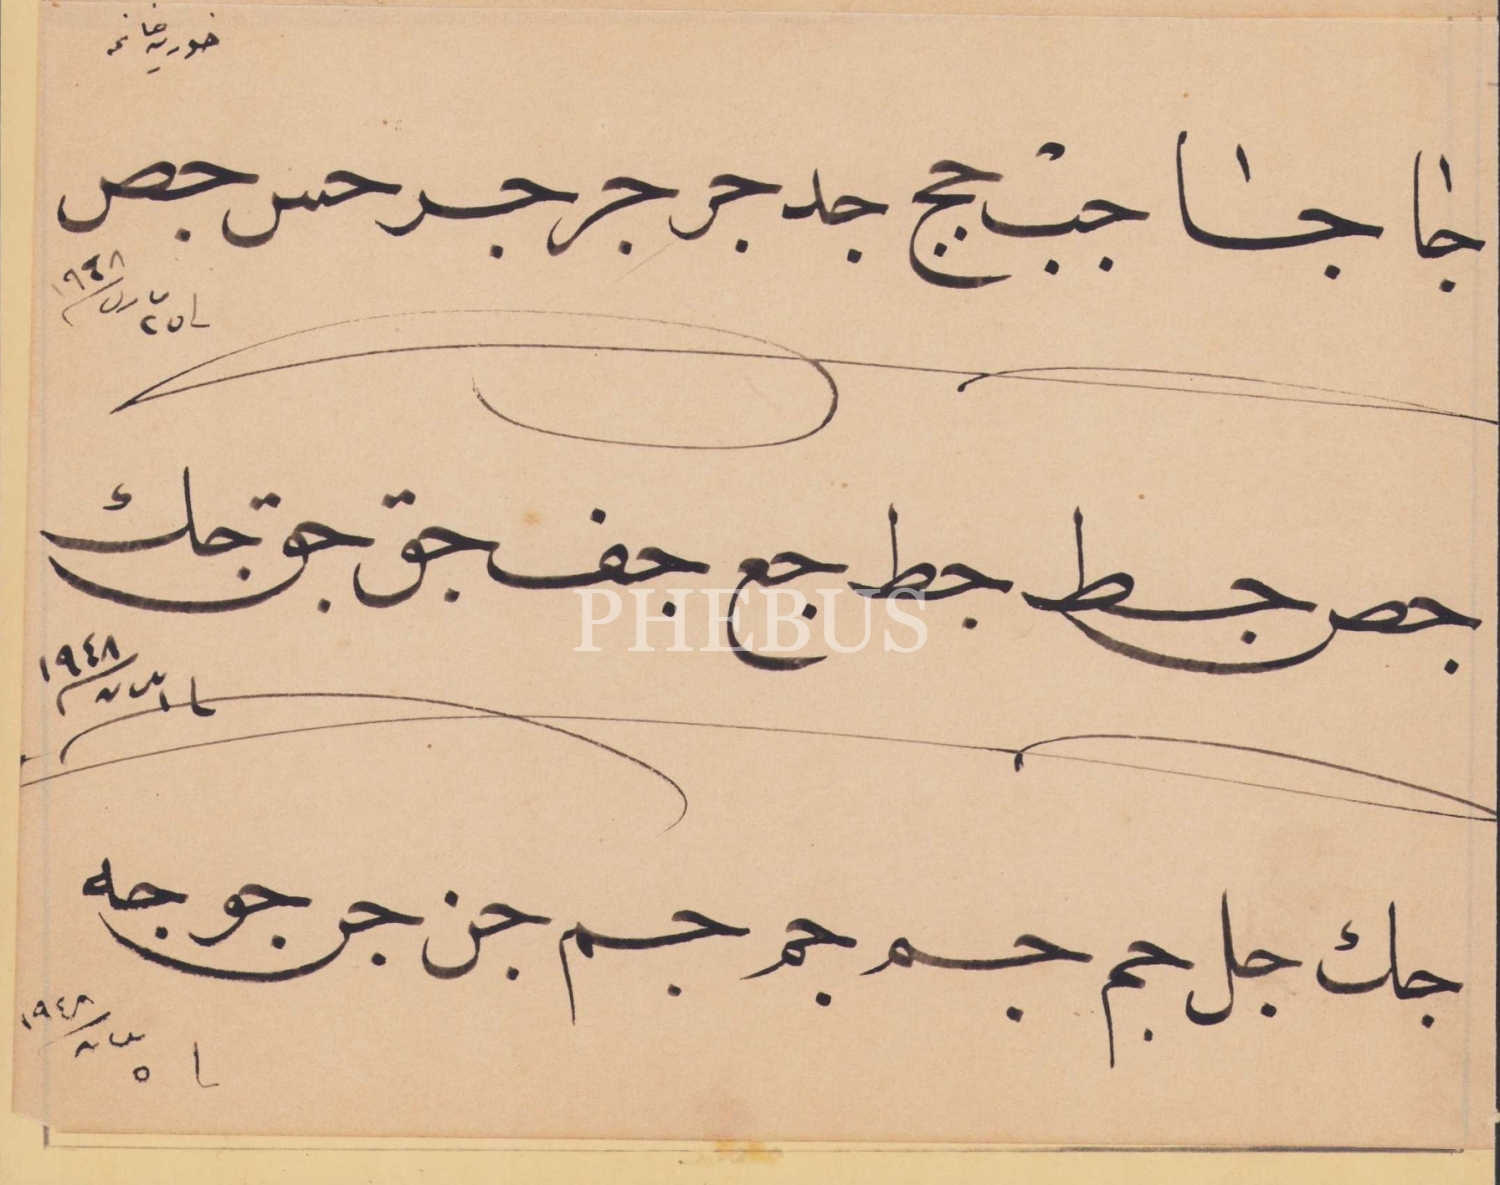 جا جا جب جج جد جر جر جر جس جص
١٩٤٨
جص جط جط جع جف جق جق جك
PHEBUS
١٩٤٨
جك جل جم جم جم جم جن جن جو جه
١٩٤٨